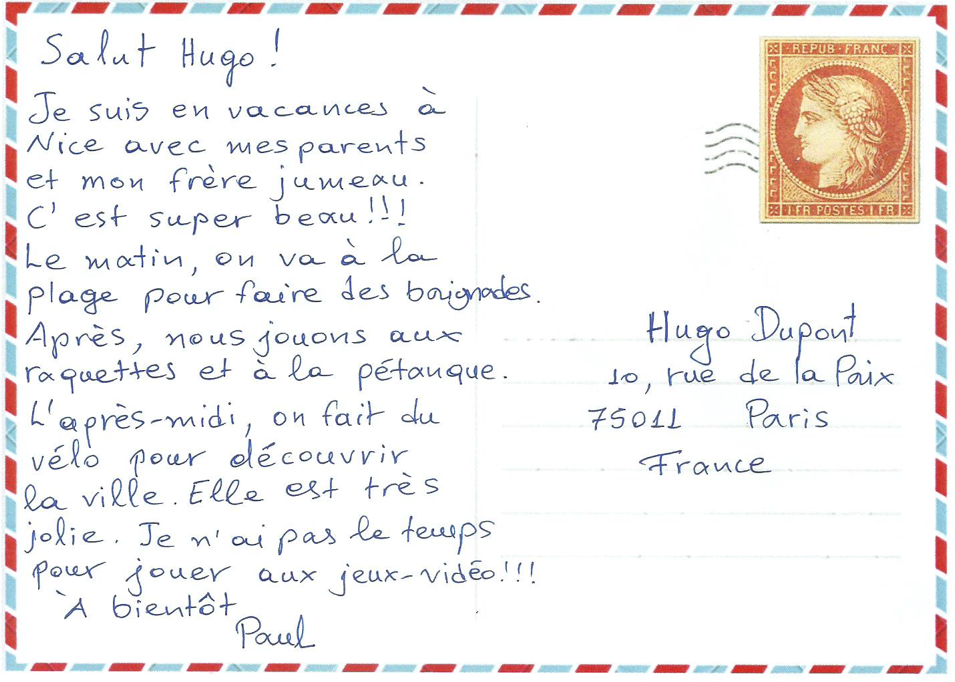 Salut Hugo !
Je suis en vacances à
Nice avec mes parents
et mon frère jumeau.
C'est super beau!!!
Le matin, on va à la
plage pour faire des baignades.
Après, nous jouons aux
raquettes et à la pétanque.
L'après-midi, on fait du
vélo pour découvrir
la ville. Elle est très
jolie. Je n'ai pas le temps
pour jouer aux jeux-vidéo!!!
À bientôt
Paul
REPUB FRANC
1.FR POSTES 1.FR
Hugo Dupont
10, rue de la Paix
75011 Paris
France